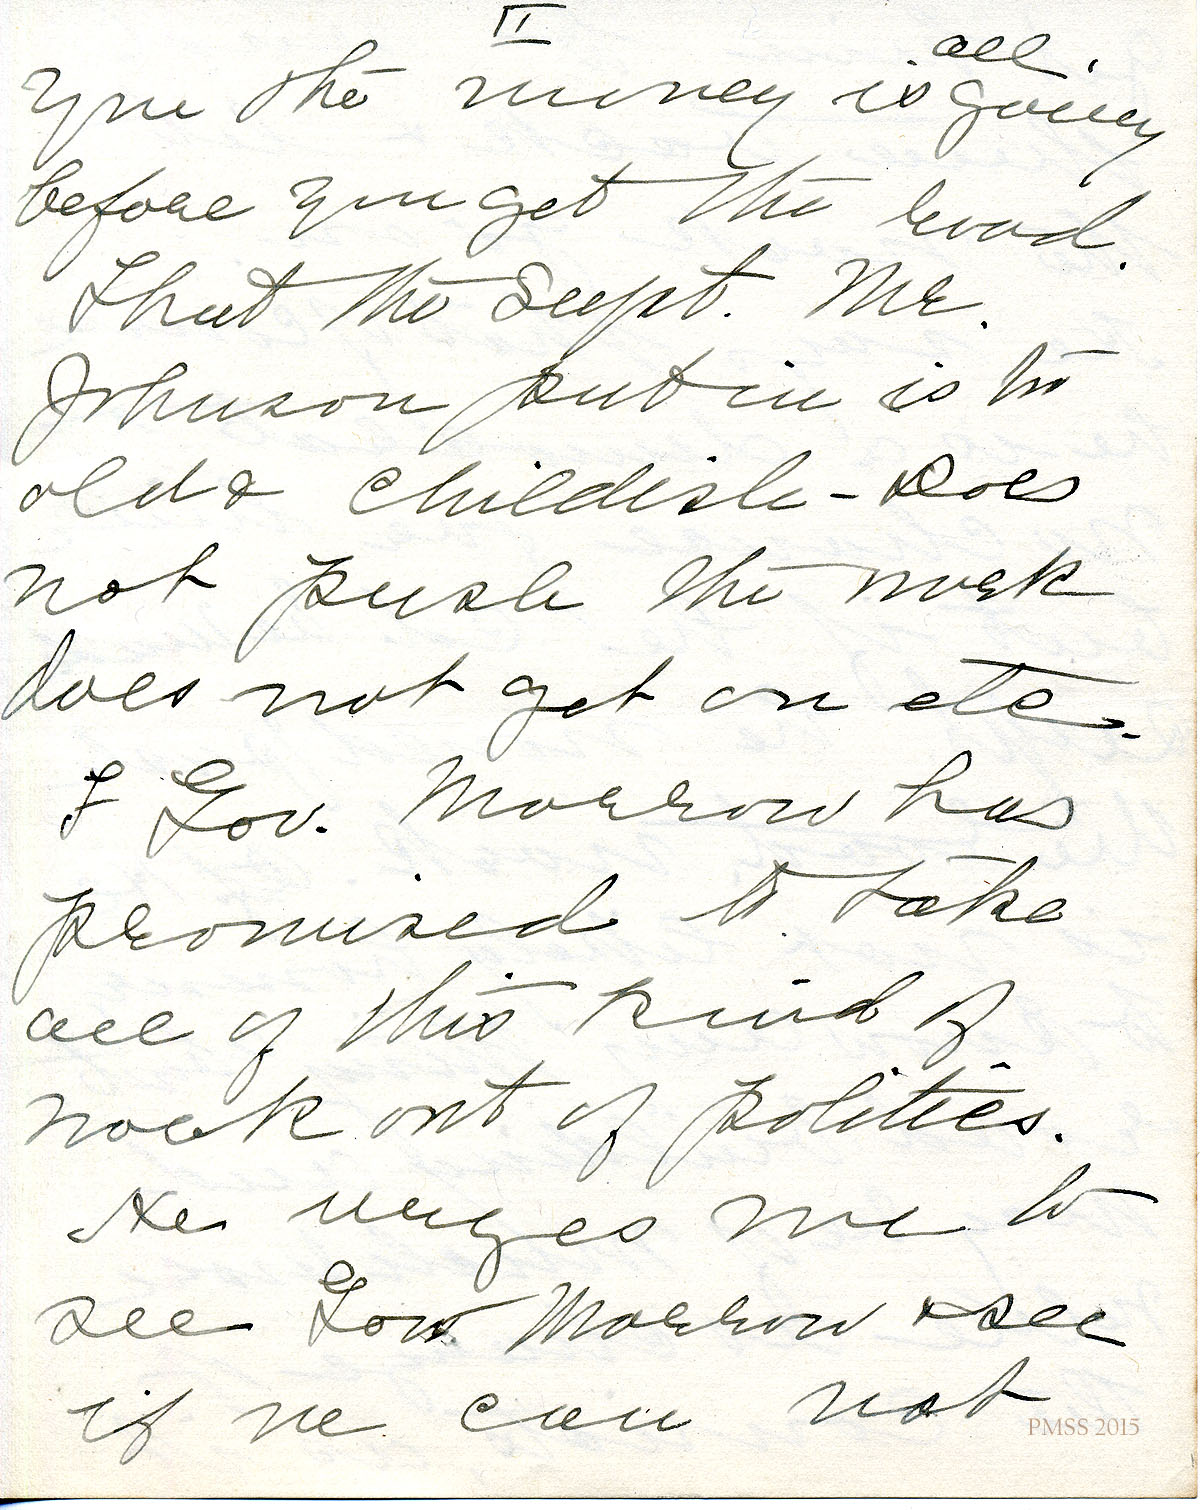 II
all.
you the money is going
before you get the road.
That the Supt. Mr.
Johnson put in is too
old & childish - Does
not push the work
does not get on etc.
& Gov. Morrow has
promised to take
all of this kind of
work out of politics.
He urges me to
see Gov. Morrow & see
if we can not
PMSS 2015